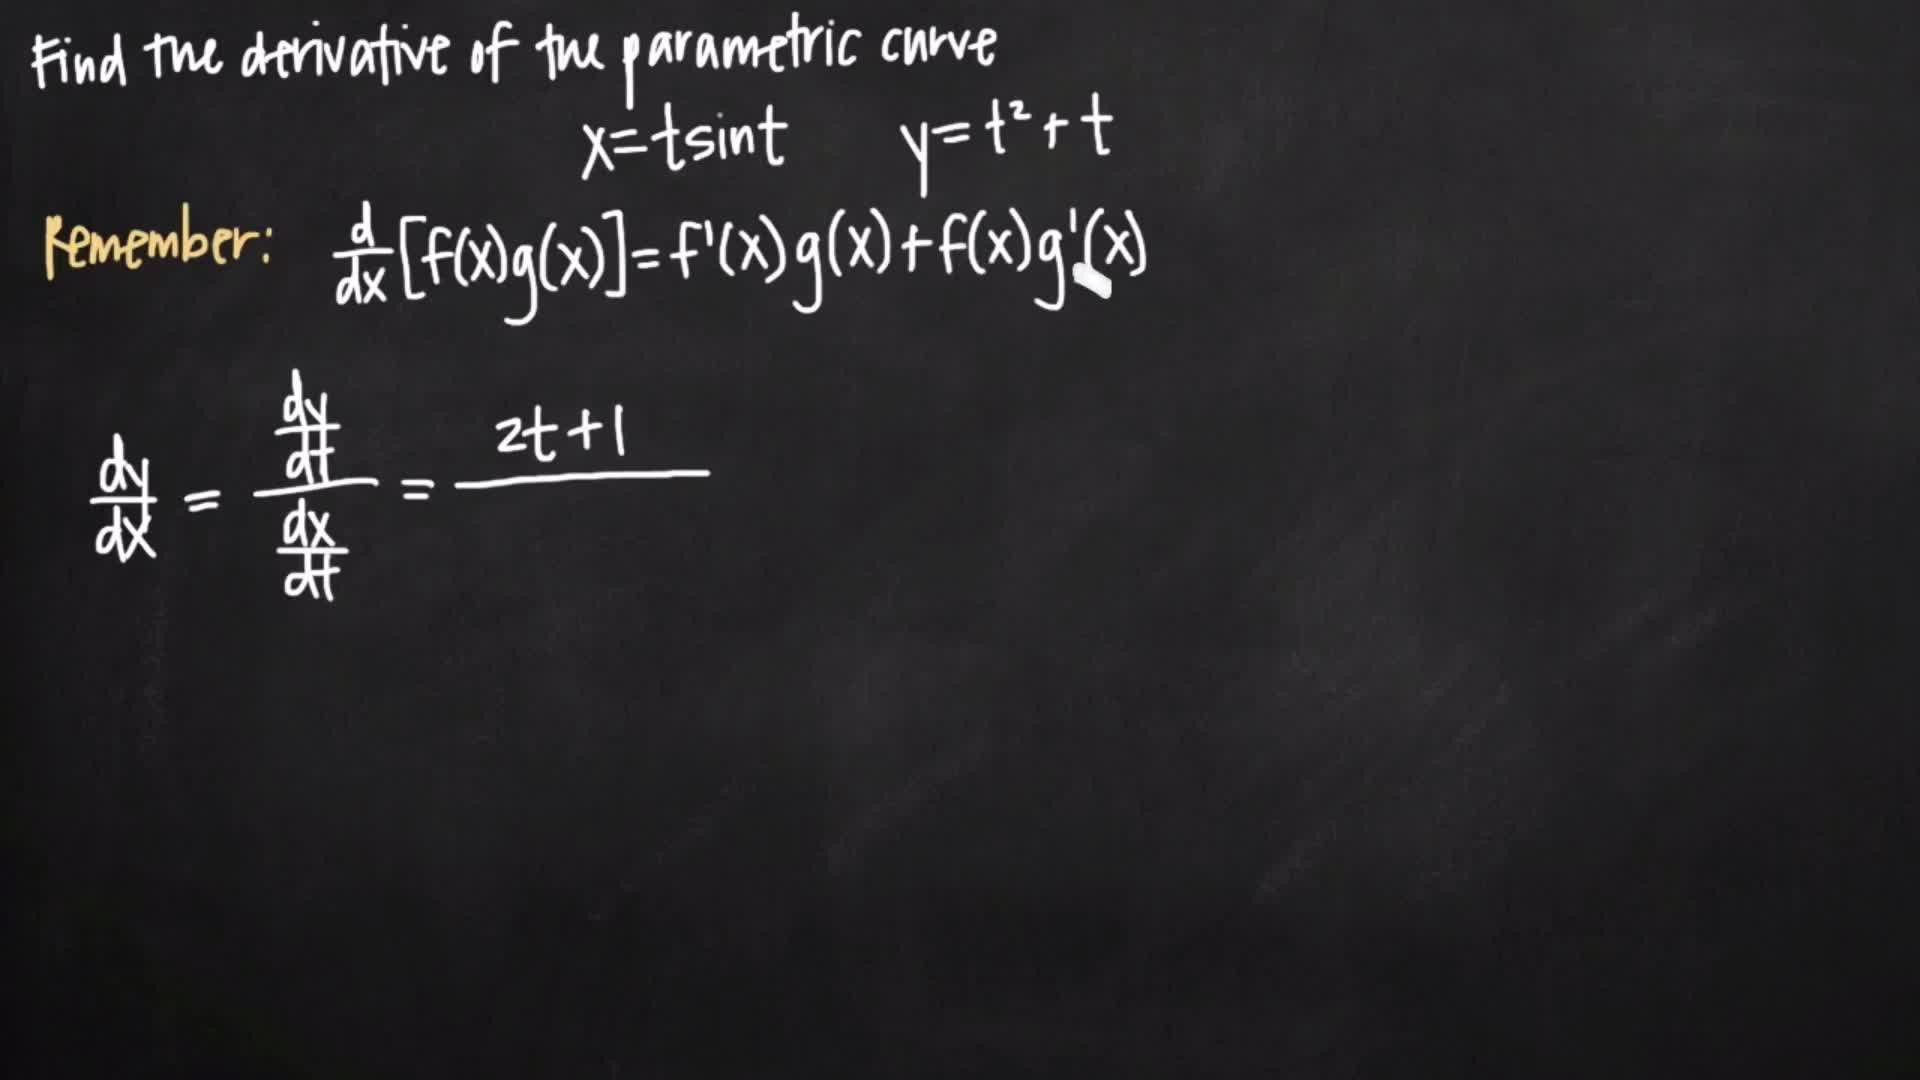 Find the derivative of the parametric curve
x=tsint y=t²+t
Remember: d/dx [f(x)g(x)]=f'(x)g(x)+f(x)g'(x)
dy/dx = (dy/dt)/(dx/dt) = 2t+1